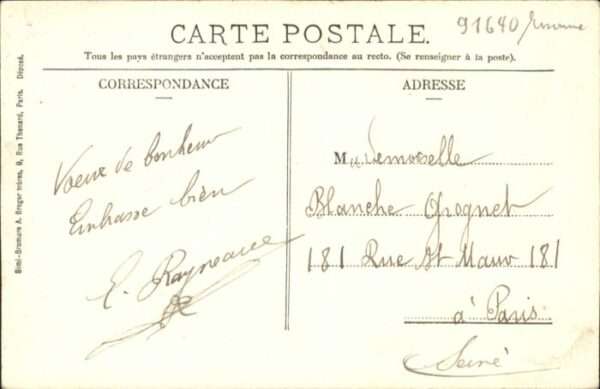 CARTE POSTALE.
91640
Tous les pays étrangers n'acceptent pas la correspondance au recto. (Se renseigner à la poste).
CORRESPONDANCE
ADRESSE
Voeux de bonheur
Embrasse bien
E.
Mademoiselle
Blanche Grognet
181 Rue St Maur 181
à Paris
Seine
Simi-Bromure A. Breger frères, 9, Rue Thenard, Paris. Déposé.